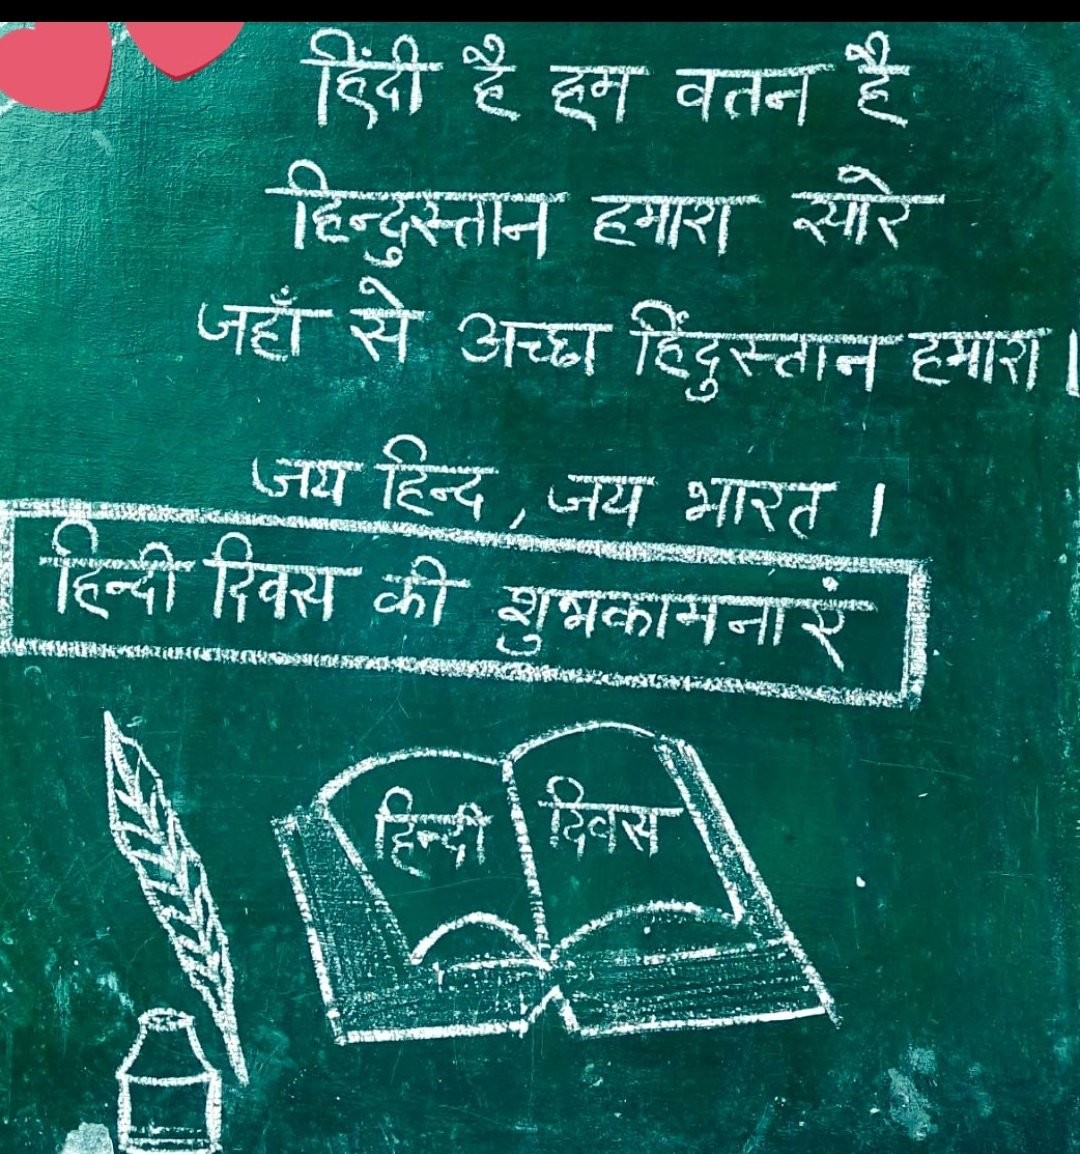 हिंदी है हम वतन है
हिन्दुस्तान हमारा सारे
जहाँ से अच्छा हिंदुस्तान हमारा।
जय हिन्द, जय भारत ।
हिन्दी दिवस की शुभकामनाएं
हिन्दी दिवस